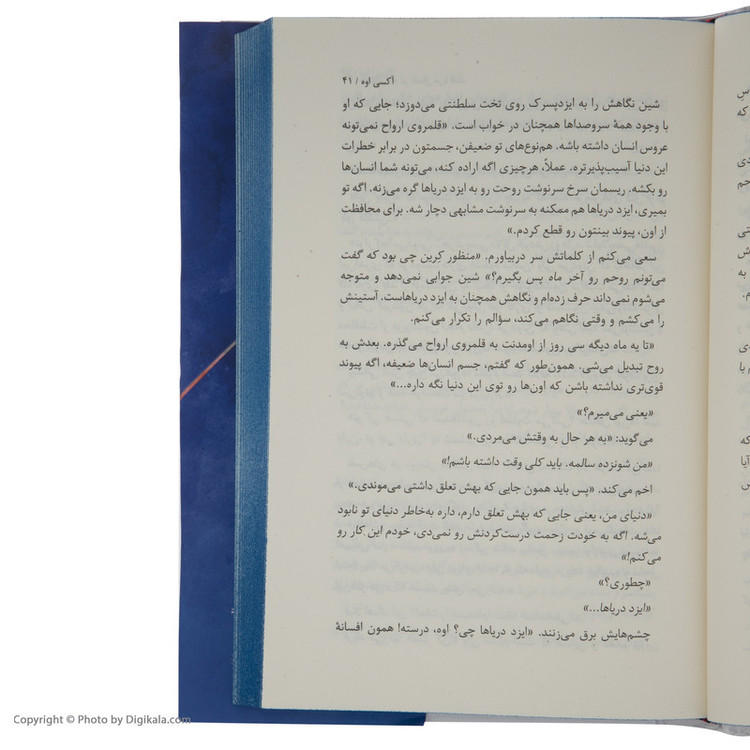 اکسی اوه / ۴۱
شین نگاهش را به ایزدپسرک روی تخت سلطنتی می‌دوزد؛ جایی که او
با وجود همهٔ سروصداها همچنان در خواب است. «قلمروی ارواح نمی‌تونه
عروس انسان داشته باشه. هم‌نوع‌های تو ضعیفن، جسمتون در برابر خطرات
این دنیا آسیب‌پذیرتره. عملاً، هرچیزی اگه اراده کنه، می‌تونه شما انسان‌ها
رو بکشه. ریسمان سرخ سرنوشت روحت رو به ایزد دریاها گره می‌زنه. اگه تو
بمیری، ایزد دریاها هم ممکنه به سرنوشت مشابهی دچار شه. برای محافظت
از اون، پیوند بینتون رو قطع کردم.»
سعی می‌کنم از کلماتش سر دربیاورم. «منظور کرین چی بود که گفت
می‌تونم روحم رو آخر ماه پس بگیرم؟» شین جوابی نمی‌دهد و متوجه
می‌شوم نمی‌داند حرف زده‌ام و نگاهش همچنان به ایزد دریاهاست. آستینش
را می‌کشم و وقتی نگاهم می‌کند، سؤالم را تکرار می‌کنم.
«تا یه ماه دیگه سی روز از اومدنت به قلمروی ارواح می‌گذره. بعدش به
روح تبدیل می‌شی. همون‌طور که گفتم، جسم انسان‌ها ضعیفه، اگه پیوند
قوی‌تری نداشته باشن که اون‌ها رو توی این دنیا نگه داره...»
«یعنی می‌میرم؟»
می‌گوید: «به هر حال به وقتش می‌مردی.»
«من شونزده سالمه. باید کلی وقت داشته باشم!»
اخم می‌کند. «پس باید همون جایی که بهش تعلق داشتی می‌موندی.»
«دنیای من، یعنی جایی که بهش تعلق دارم، داره به‌خاطر دنیای تو نابود
می‌شه. اگه به خودت زحمت درست‌کردنش رو نمی‌دی، خودم این کار رو
می‌کنم!»
«چطوری؟»
«ایزد دریاها...»
چشم‌هایش برق می‌زنند. «ایزد دریاها چی؟ اوه، درسته! همون افسانهٔ
Copyright © Photo by Digikala.com